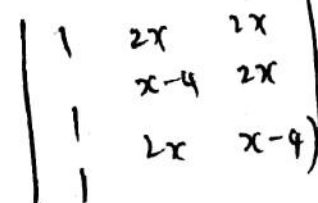 | 1 2x 2x
x-4 2x
1 2x x-4 )
| 1